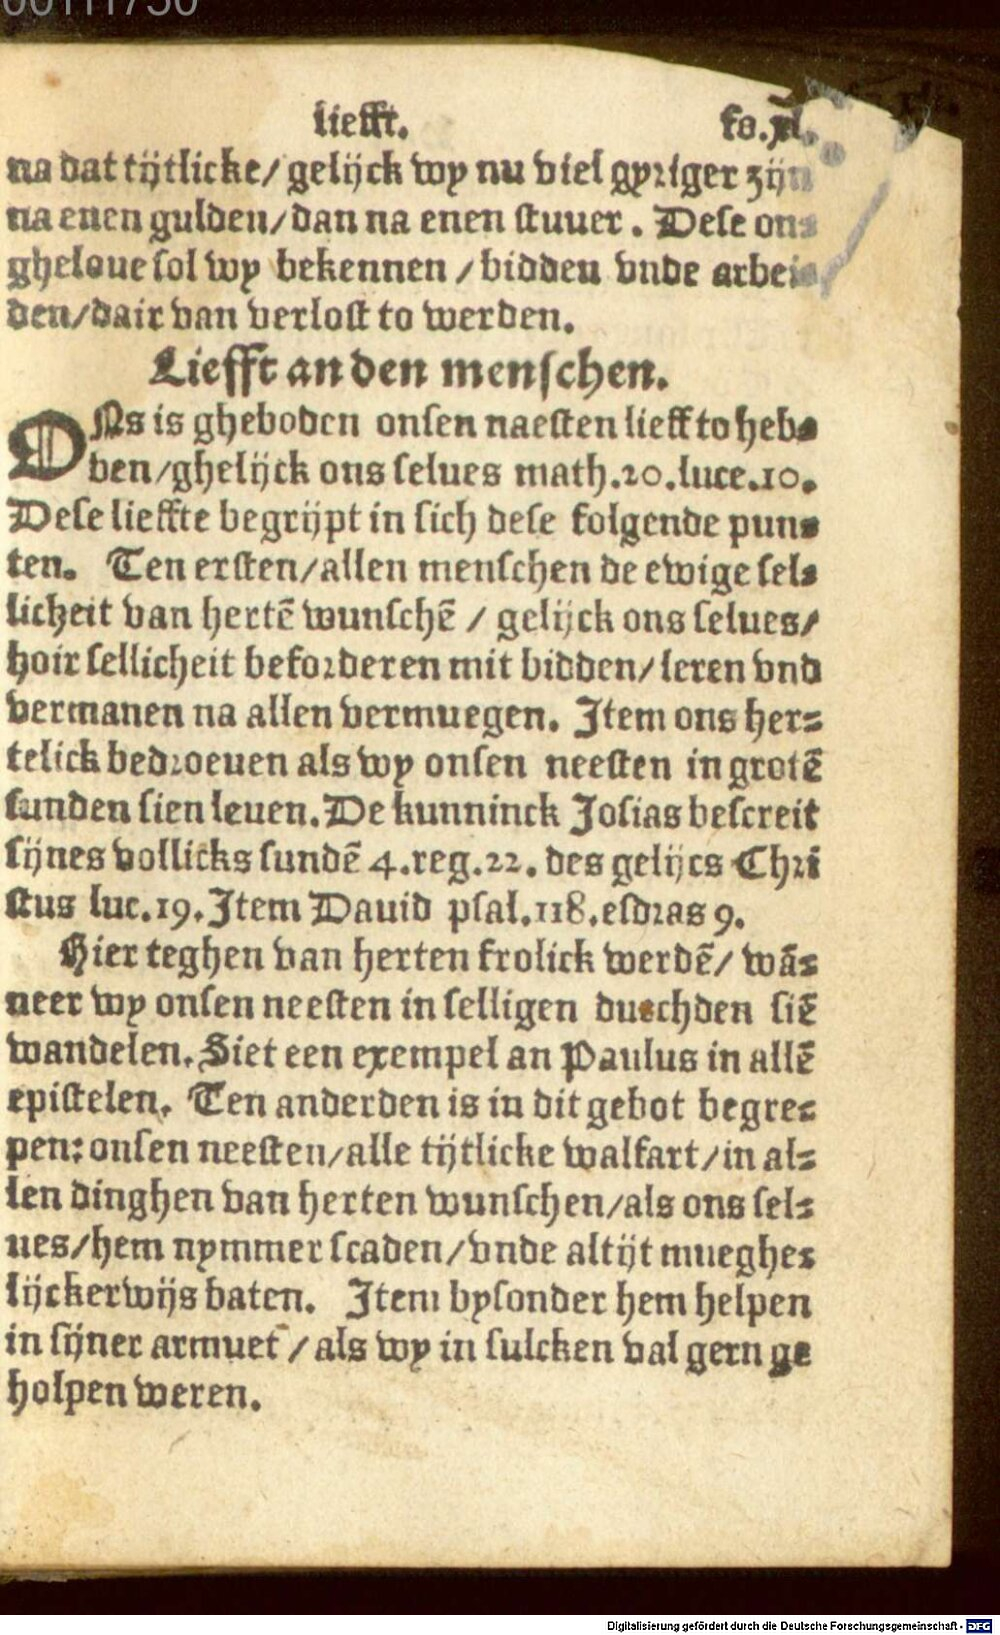 00111750
liefft. fo.xl.
na dat tijtlicke/ gelijck wy nu viel gyriger zijn
na enen gulden/dan na enen stuuer. Dese ons
gheloue sol wy bekennen /bidden vnde arbei⸗
den/dair van verlost to werden.
Liefft an den menschen.
ONs is gheboden onsen naesten lieff to heb⸗
ben/ghelijck ons selues math.20.luce.10.
Dese lieffte begrijpt in sich dese folgende pun⸗
ten. Ten ersten/allen menschen de ewige sel⸗
licheit van hertē wunschē / gelijck ons selues/
hoir sellicheit beforderen mit bidden/leren vnd
vermanen na allen vermuegen. Item ons her⸗
telick bedroeuen als wy onsen neesten in grotē
sunden sien leuen. De kunninck Josias bescreit
sijnes vollicks sundē 4.reg.22. des gelijcs Chri
stus luc.19. Item Dauid psal.118.esdras 9.
Hier teghen van herten frolick werdē/ wā⸗
neer wy onsen neesten in selligen duechden siē
wandelen. Siet een exempel an Paulus in allē
epistelen. Ten anderden is in dit gebot begre⸗
pen: onsen neesten/alle tijtlicke walfart/in al⸗
len dinghen van herten wunschen/als ons sel⸗
ues/hem nymmer scaden/vnde altijt mueghe⸗
lijckerwijs baten. Item bysonder hem helpen
in sijner armuet /als wy in sulcken val gern ge
holpen weren.
Digitalisierung gefördert durch die Deutsche Forschungsgemeinschaft - DFG